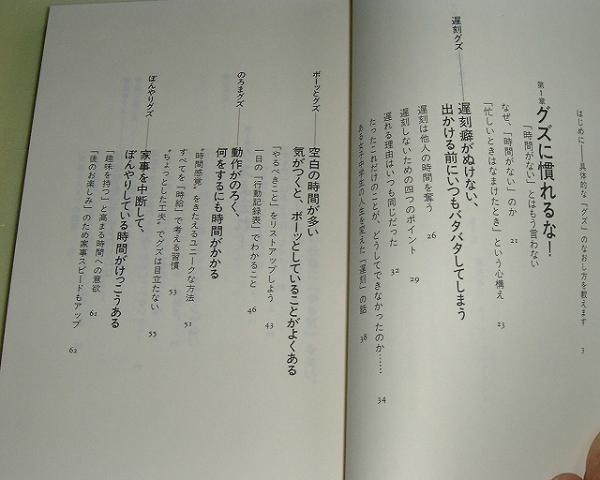 はじめに――具体的な「グズ」のなおし方を教えます 3
第1章
グズに慣れるな！
「時間がない」とはもう言わない
なぜ、「時間がない」のか 21
「忙しいときはなまけたとき」という心構え 23
遅刻グズ――遅刻癖がぬけない、
出かける前にいつもバタバタしてしまう
遅刻は他人の時間を奪う 26
遅刻しないための四つのポイント 29
遅れる理由はいつも同じだった 32
たったこれだけのことが、どうしてできなかったのか…… 34
ある女子中学生の人生を変えた「遅刻」の話 38
ボーッとグズ――空白の時間が多い
気がつくと、ボーッとしていることがよくある
「やるべきこと」をリストアップしよう 43
一日の「行動記録表」でわかること 46
のろまグズ――動作がのろく、
何をするにも時間がかかる
“時間感覚”をきたえるユニークな方法 51
すべてを「時給」で考える習慣 53
“ちょっとした工夫”でグズは目立たない 55
ぼんやりグズ――家事を中断して、
ぼんやりしている時間がけっこうある
「趣味を持つ」と高まる時間への意欲 61
「後のお楽しみ」のため家事スピードもアップ 62